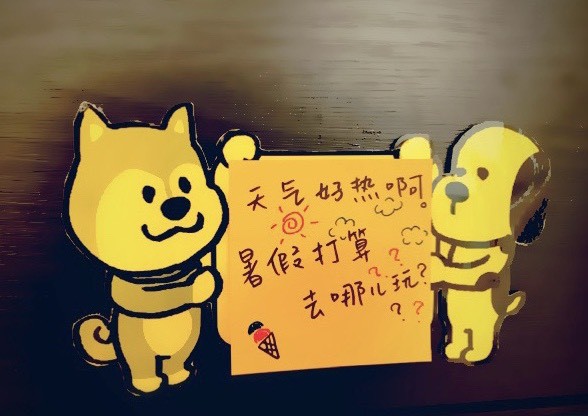 天气好热啊。
暑假打算
去哪儿玩?
????